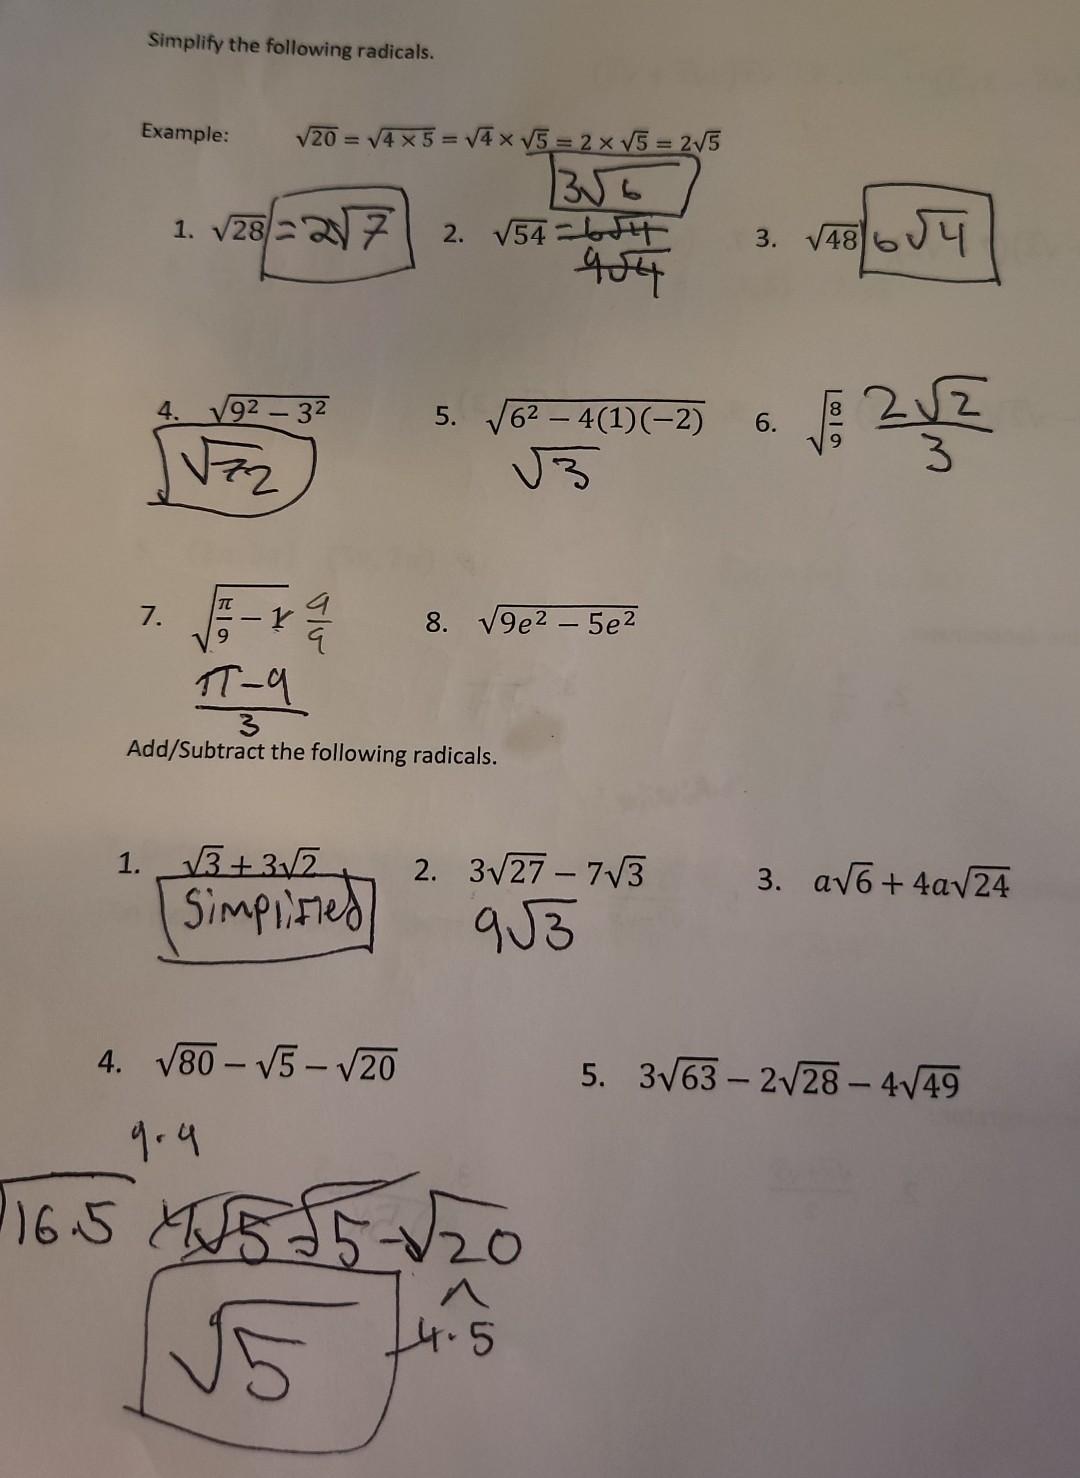 Simplify the following radicals.
Example: √20 = √4 × 5 = √4 × √5 = 2 × √5 = 2√5
1. √28 = 2√7
3√6
2. √54 = 6√4
9√4
3. √48 6√4
4. √9² − 3²
√72
5. √6² − 4(1)(−2)
√3
6. √8/9 2√2/3
7. √π/9 − 1 9/9
π−9/3
8. √9e² − 5e²
Add/Subtract the following radicals.
1. √3 + 3√2
Simplified
2. 3√27 − 7√3
9√3
3. a√6 + 4a√24
4. √80 − √5 − √20
9·9
√16.5 4√5 − √5 − √20
4·5
√5
5. 3√63 − 2√28 − 4√49